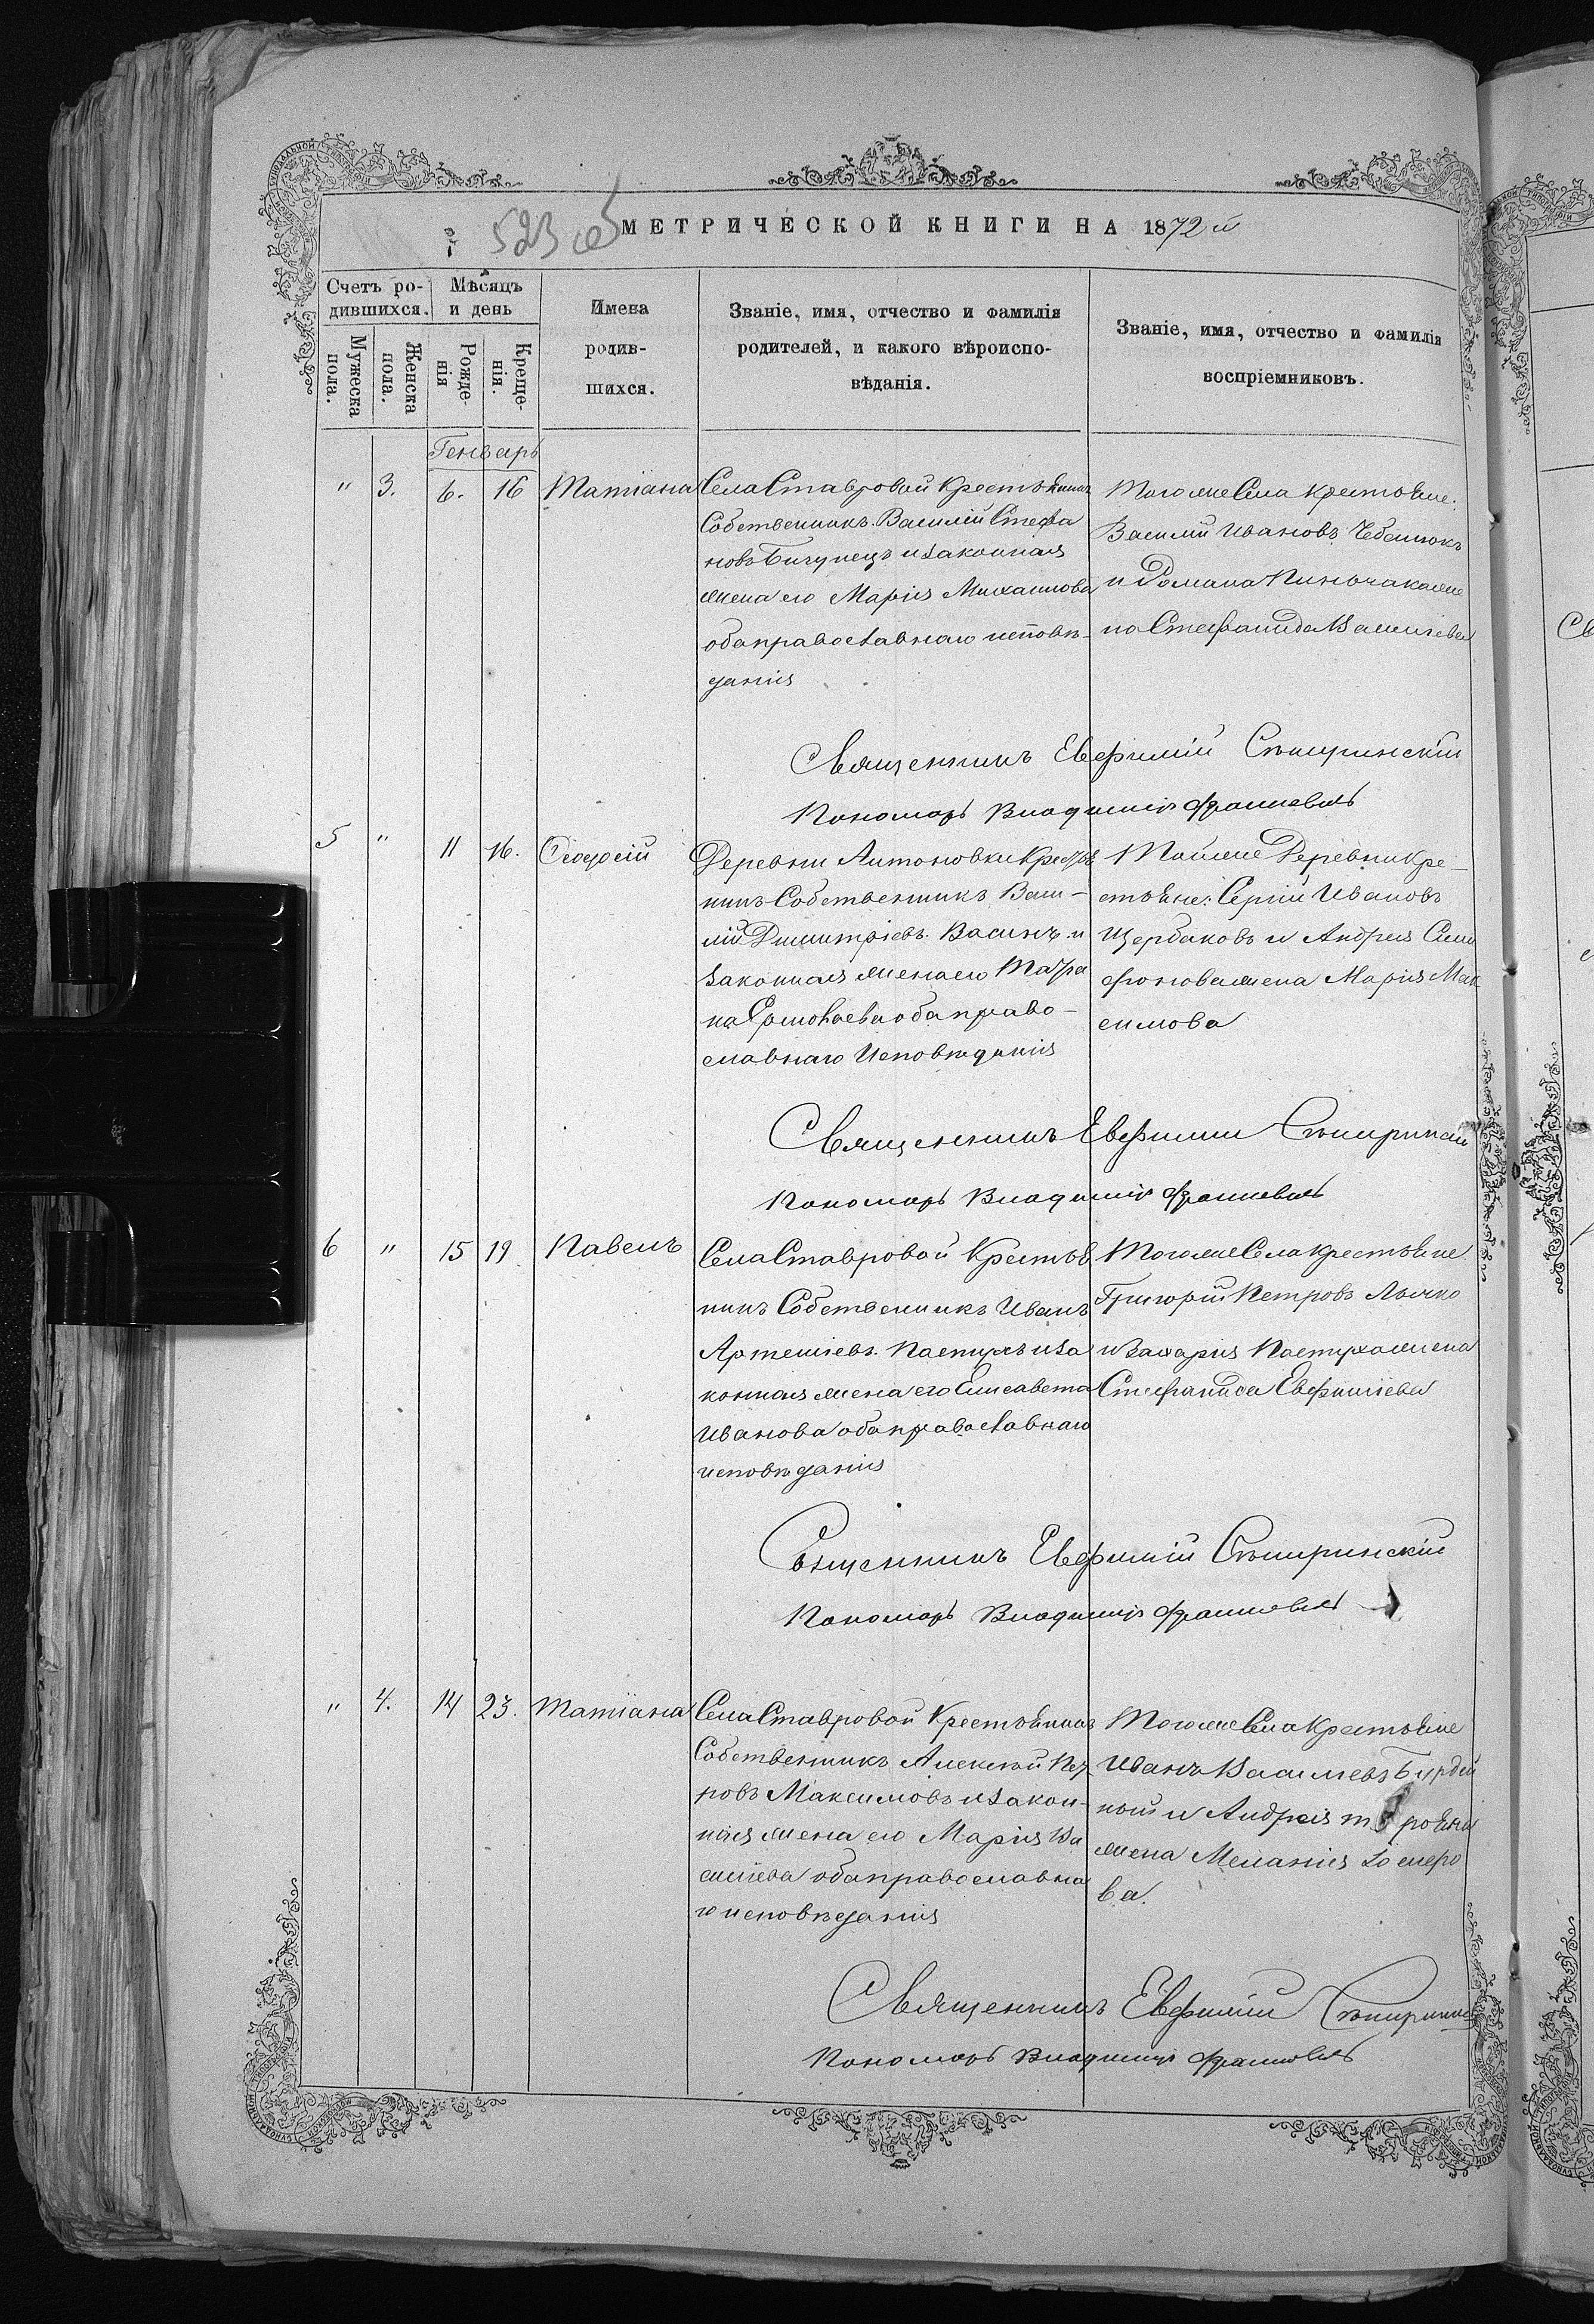 523 об
МЕТРИЧЕСКОЙ КНИГИ НА 1872 й
Счетъ ро-
дившихся.
Мѣсяцъ
и день
Мужеска
пола.
Женска
пола.
Рожде-
нія
Креще-
нія.
Имена
родив-
шихся.
Званіе, имя, отчество и фамилія
родителей, и какого вѣроиспо-
вѣданія.
Званіе, имя, отчество и фамилія
воспріемниковъ.
Генварь
" 3. 6. 16 Татіана
Села Ставровой Крестьянинъ
Собственникъ Василій Стефа
новъ Бигунецъ и законная
жена его Марія Михаилова
оба православнаго исповѣ-
данія
Тогоже Села крестьяне:
Василій Ивановъ
и Романа ж
на Стефанида Василіева
Священникъ Евфимій
Пономарь Владиміръ
5 " 11 16. Ѳеодосій
Деревни Антоновки Кресть
нинъ Собственникъ Васи-
лій Димитріевъ Васинъ и
законная жена его Матро
на Ермолаева оба право-
славнаго Исповѣданія
Тойже Деревни Кре-
стьяне: Сергій Ивановъ
Щербаковъ и Андрея Сили
фонова жена Марія Мак
симова
Священникъ Евфимій
Пономарь Владиміръ
6 " 15 19 Павелъ
Села Ставровой Крестья
нинъ Собственникъ Иванъ
Артеміевъ Пастухъ и за
конная жена его Елисавета
Иванова оба православнаго
исповѣданія
Тогоже Села крестьяне
Григорій Петровъ Лычко
и Захарія Пастуха жена
Стефанида Евфиміева
Священникъ Евфимій
Пономарь Владиміръ
" 4. 14 23. Татіана
Села Ставровой Крестьянинъ
Собственникъ Алексѣй Пет
ровъ Максимовъ и закон-
ная жена его Марія Ва
силіева оба православна
го исповѣданія
Тогоже Села Крестьяне
Иванъ Васильевъ
и Андрея
жена Меланія
ва.
Священникъ Евфимій
Пономарь Владиміръ